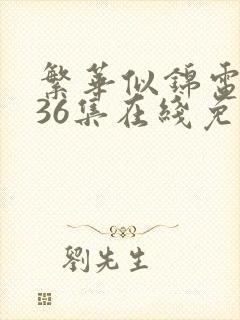 繁華似錦電
36集在綫免
劉先生